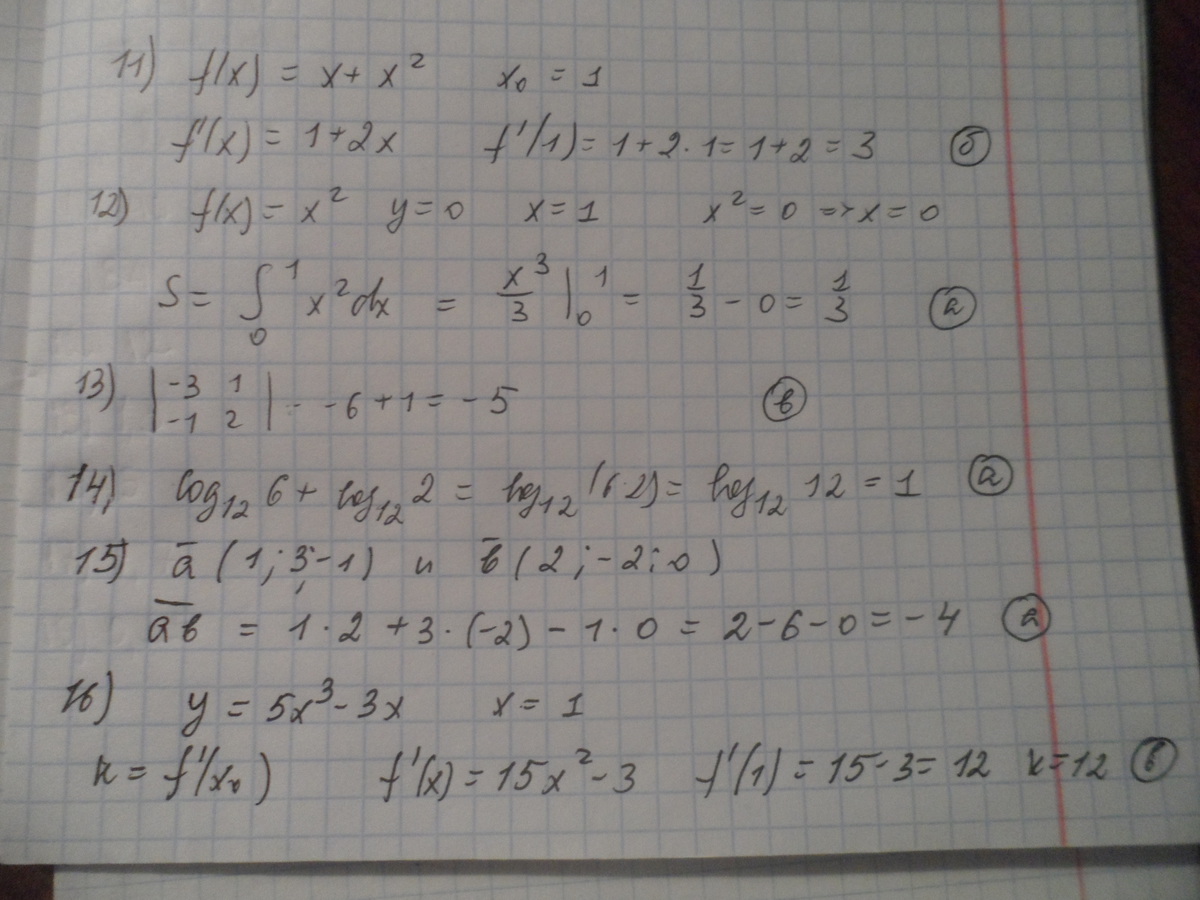 11) f(x) = x + x² x₀ = 1
f'(x) = 1+2x f'(1) = 1+2·1 = 1+2 = 3 б
12) f(x) = x² y=0 x=1 x²=0 => x=0
S = ∫₀¹ x²dx = x³/3 |₀¹ = 1/3 - 0 = 1/3 а
13) |-3 1; -1 2| = -6+1 = -5 в
14) log₁₂ 6 + log₁₂ 2 = log₁₂ (6·2) = log₁₂ 12 = 1 а
15) a̅ (1; 3; -1) и b̅ (2; -2; 0)
a̅b̅ = 1·2 + 3·(-2) - 1·0 = 2-6-0 = -4 а
16) y = 5x³ - 3x x = 1
k = f'(x₀) f'(x) = 15x² - 3 f'(1) = 15-3 = 12 k=12 в